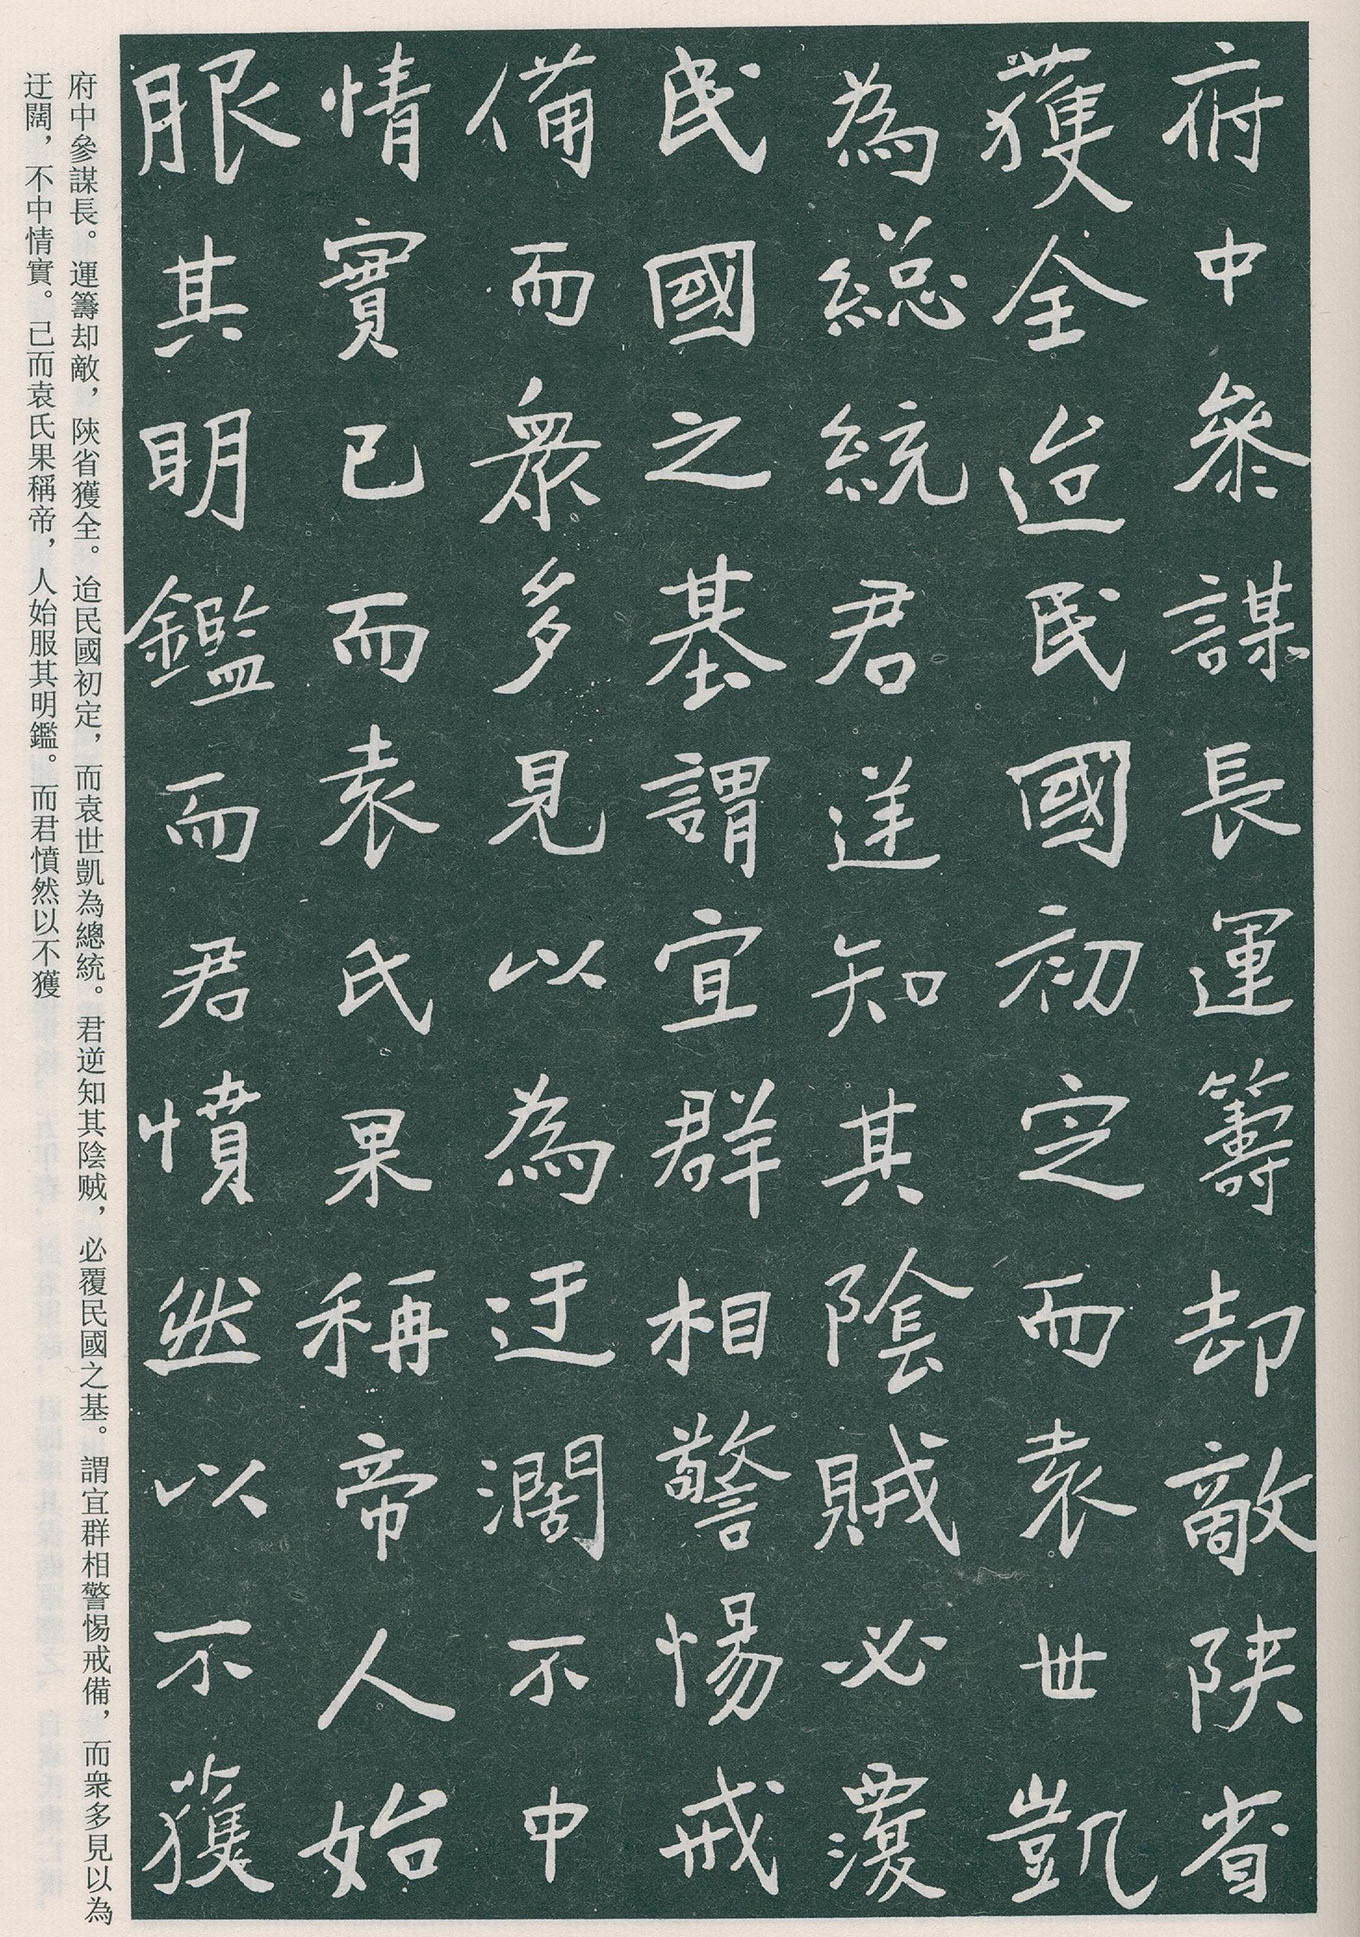 府中參謀長運籌却敵陝省
獲全迨民國初定而袁世凱
為總統君逆知其陰賊必覆
民國之基謂宜群相警惕戒
備而衆多見以為迂闊不中
情實已而袁氏果稱帝人始
服其明鑑而君憤然以不獲
府中參謀長。運籌却敵，陝省獲全。迨民國初定，而袁世凱為總統。君逆知其陰賊，必覆民國之基。謂宜群相警惕戒備，而衆多見以為
迂闊，不中情實。已而袁氏果稱帝，人始服其明鑑。而君憤然以不獲